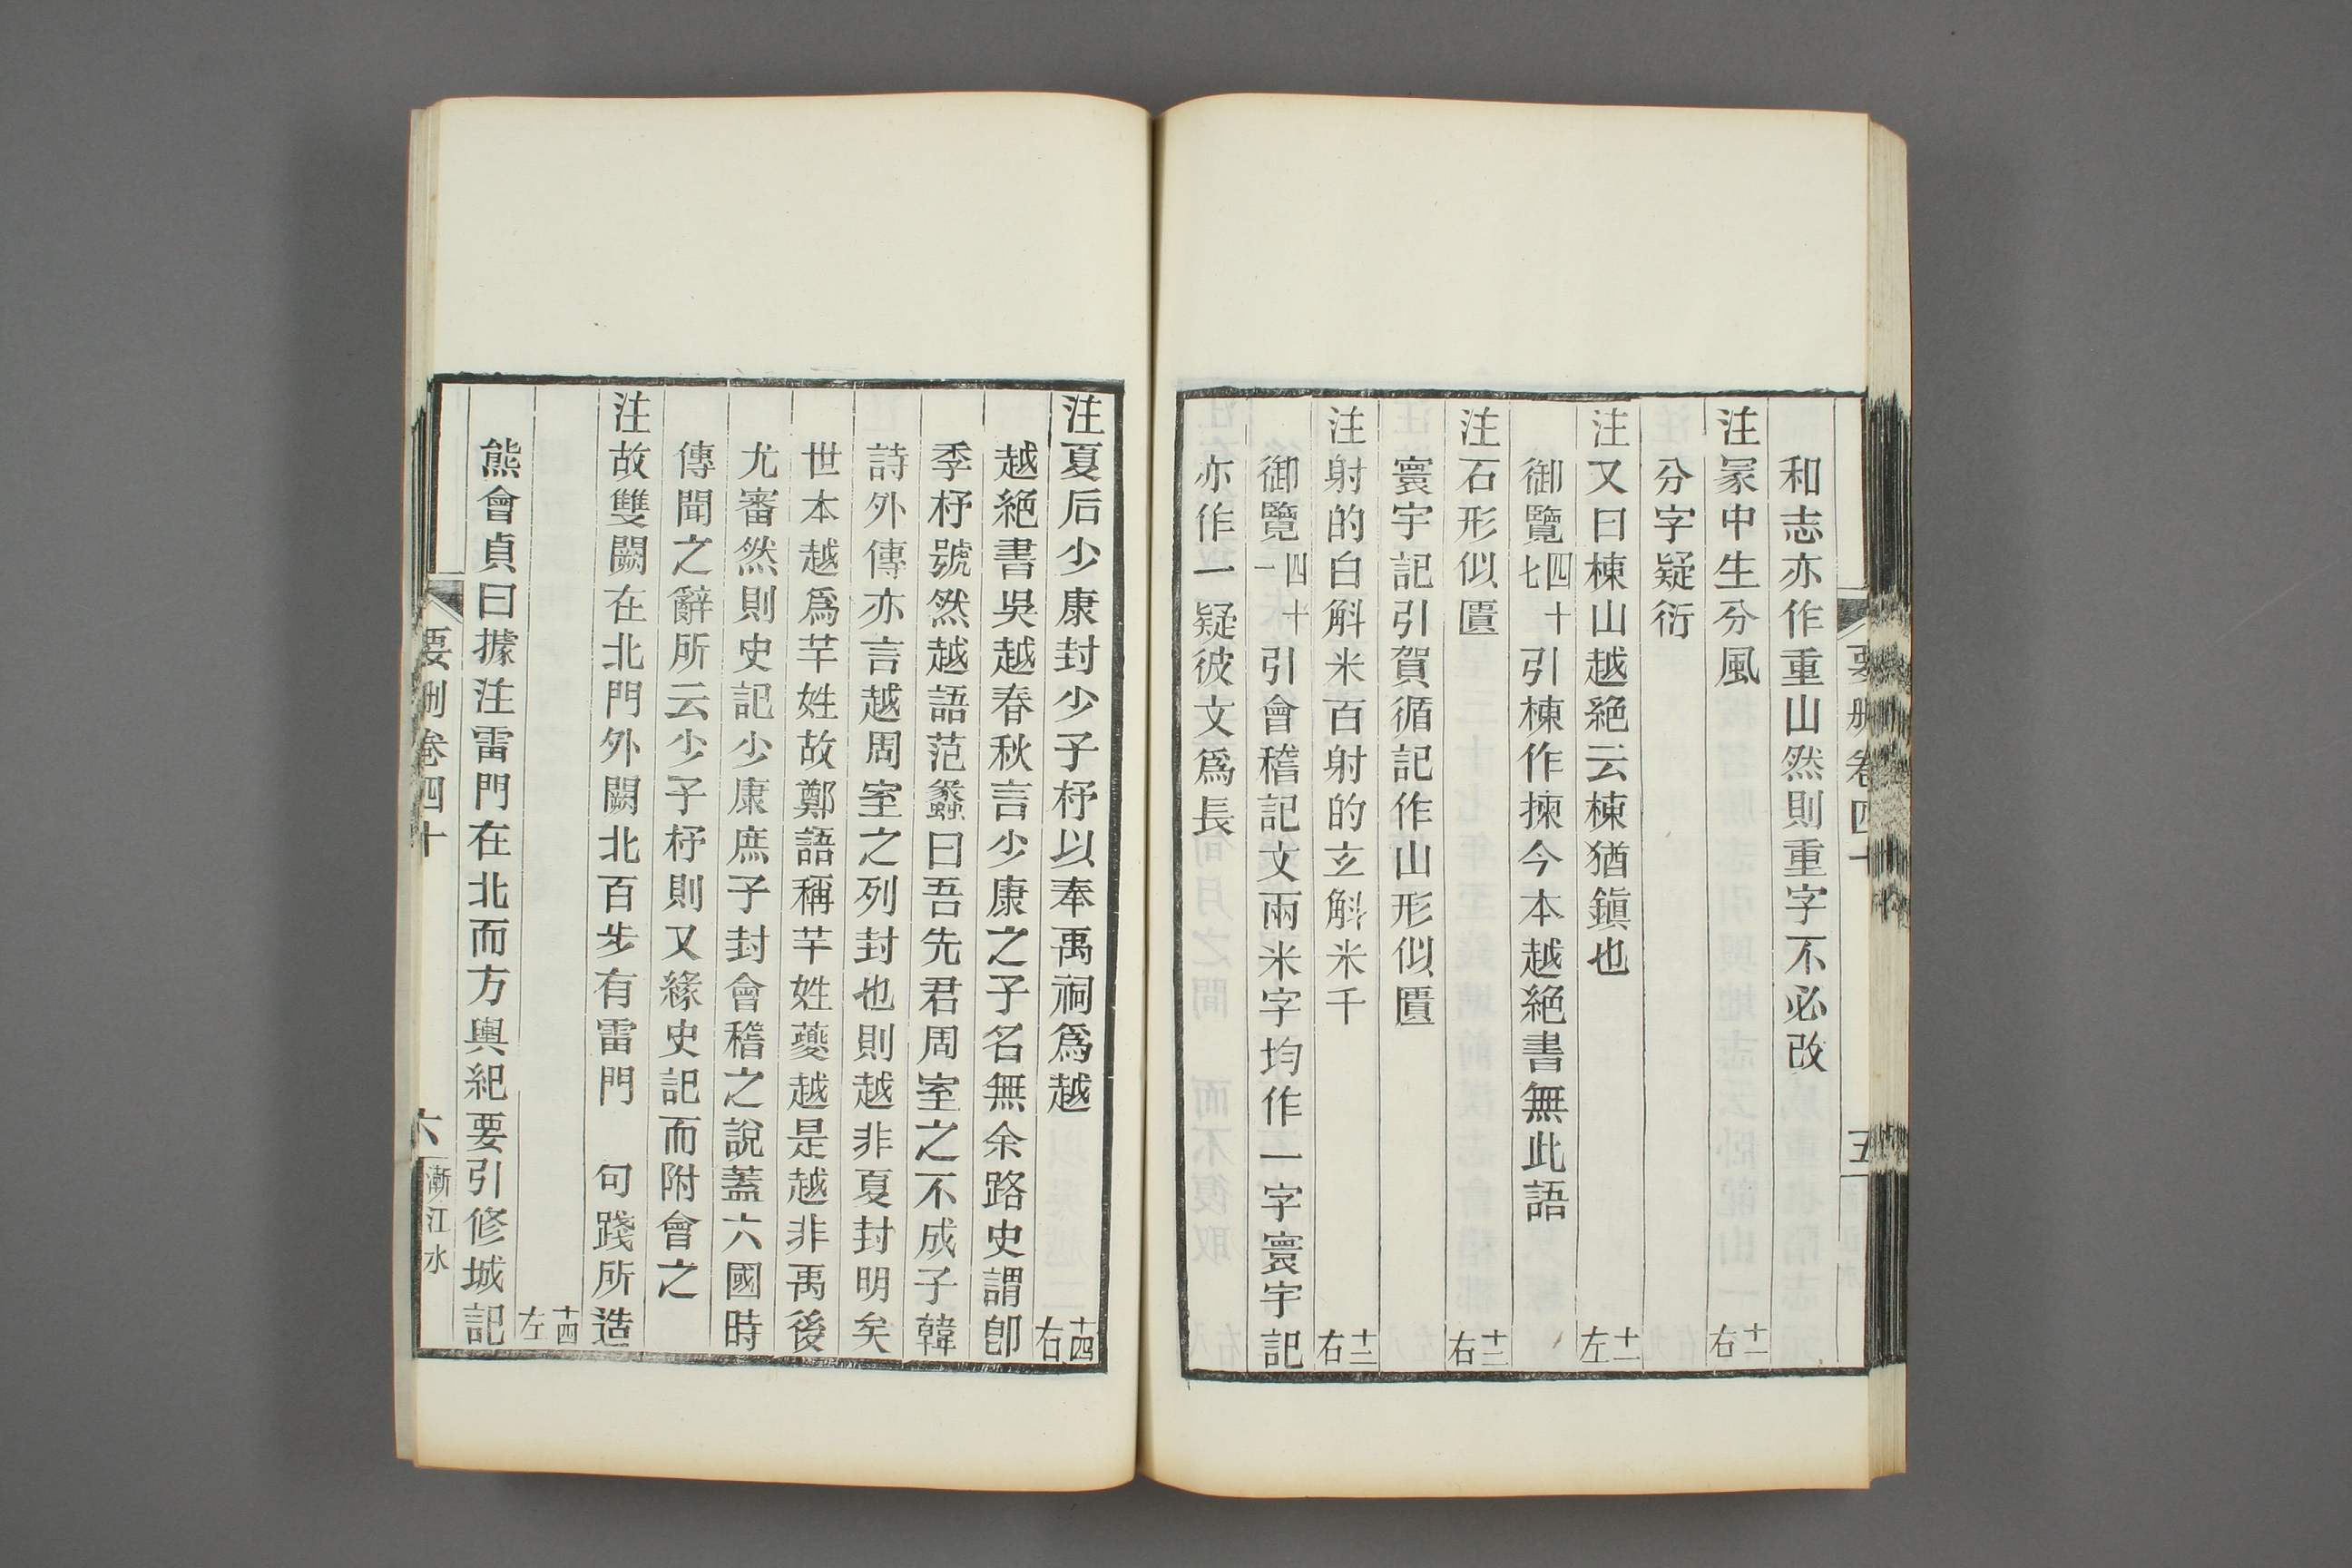 要刪卷四十
五
和志亦作重山然則重字不必改
注冢中生分風 十一右
分字疑衍
注又曰棟山越絕云棟猶鎭也 十一左
御覽四十七引棟作揀今本越絕書無此語
注石形似匱 十二右
寰宇記引賀循記作山形似匱
注射的白斛米百射的玄斛米千 十二右
御覽四十一引會稽記文兩米字均作一字寰宇記
亦作一疑彼文爲長
注夏后少康封少子杼以奉禹祠爲越 十四右
越絕書吳越春秋言少康之子名無余路史謂卽
季杼號然越語范蠡曰吾先君周室之不成子韓
詩外傳亦言越周室之列封也則越非夏封明矣
世本越爲芊姓故鄭語稱芊姓夔越是越非禹後
尤審然則史記少康庶子封會稽之說蓋六國時
傳聞之辭所云少子杼則又緣史記而附會之
注故雙闕在北門外闕北百步有雷門 句踐所造
十四左
熊會貞曰據注雷門在北而方輿紀要引修城記
要刪卷四十
六
漸江水